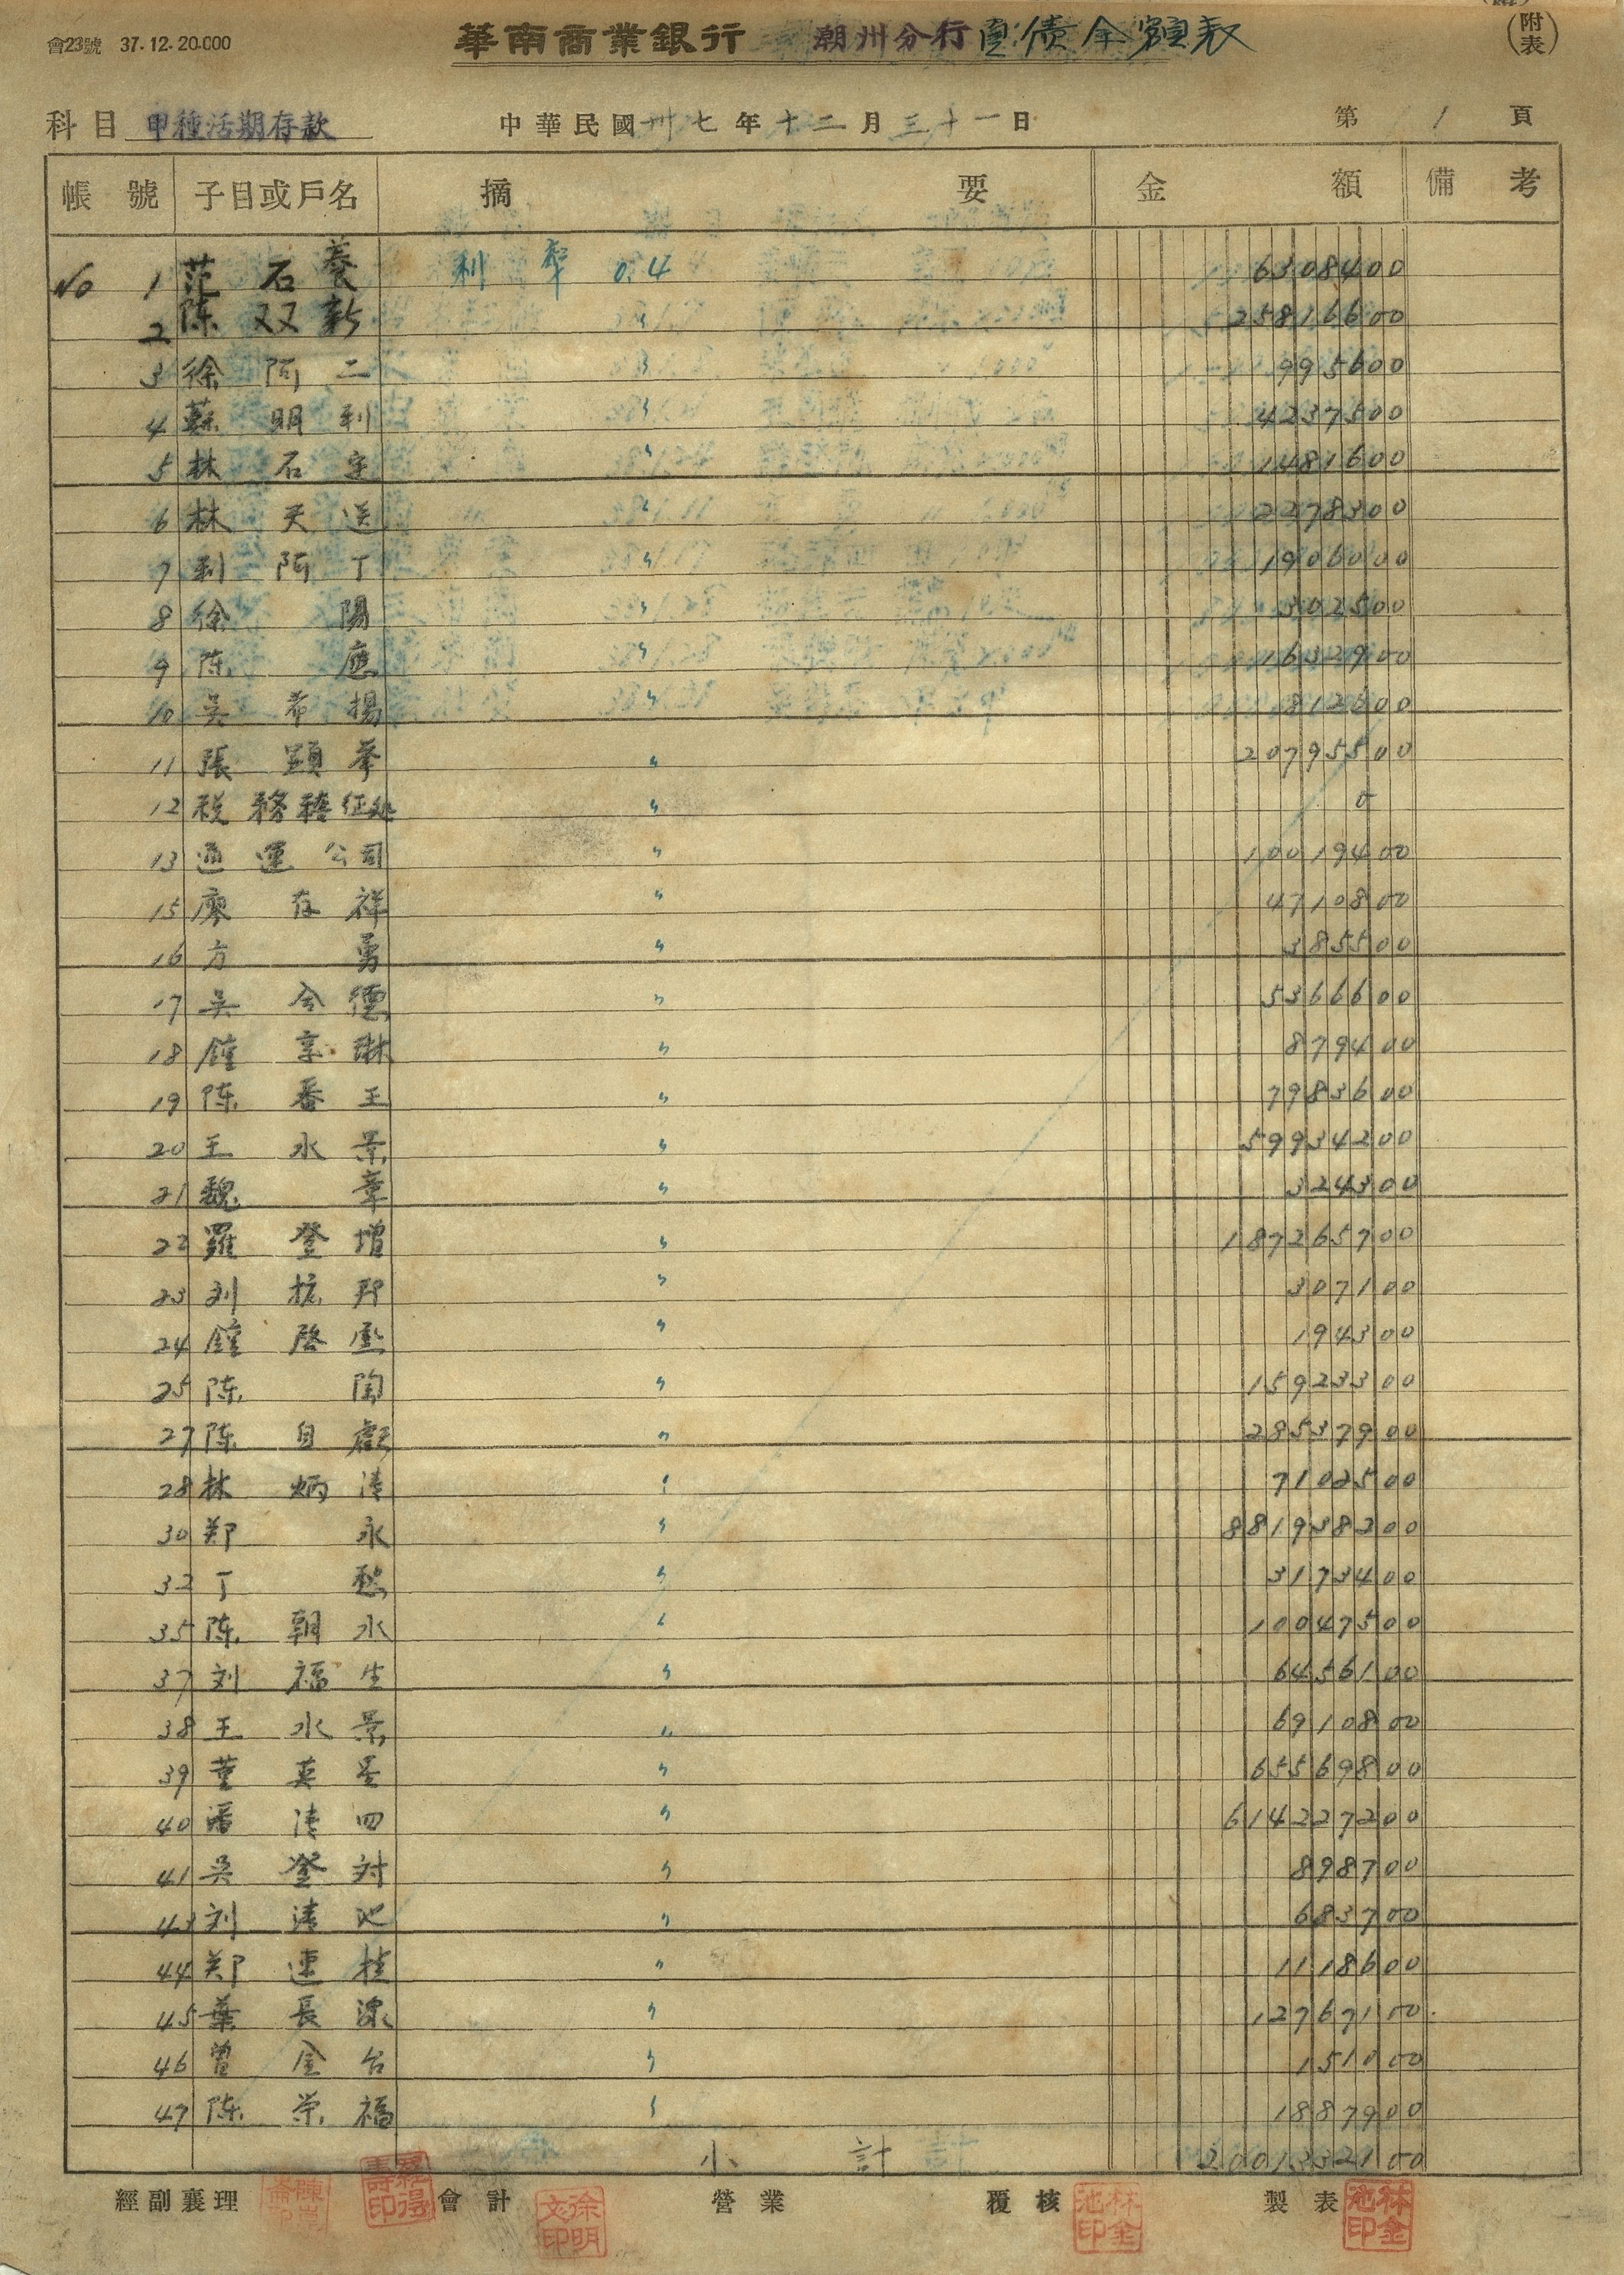 會23號 37.12.20.000
華南商業銀行 潮州分行負債金額表 (附表)
科目 甲種活期存款 中華民國卅七年十二月三十一日 第 1 頁
帳號 子目或戶名 摘要 金額 備考
No 1 范石養 利率 0.4 6308400
2 陳双新 〃 25816600
3 徐阿二 〃 995600
4 蘇明利 〃 4237500
5 林石定 〃 1481600
6 林天送 〃 2278300
7 利阿丁 〃 1906000
8 徐陽 〃 302500
9 陈應 〃 1632900
10 吳希揚 〃 812600
11 張顕華 〃 20795500
12 稅務稽征处 〃 0
13 通運公司 〃 10019400
15 廖存祥 〃 4710800
16 方勇 〃 385500
17 吳金德 〃 5366600
18 鍾享琳 〃 879400
19 陈番王 〃 7983600
20 王水景 〃 59934200
21 魏章 〃 324300
22 羅登增 〃 187265700
23 刘 〃 307100
24 鍾啓 〃 194300
25 陈陶 〃 15923300
27 陈自 〃 28537900
28 林炳清 〃 7102500
30 郑永 〃 881938200
32 丁 〃 3173400
35 陈朝水 〃 10047500
37 刘福生 〃 6456100
38 王水景 〃 6910800
39 董英星 〃 65569800
40 潘清四 〃 614227200
41 吳登対 〃 898700
43 刘清池 〃 683700
44 郑連桂 〃 1118600
45 葉長源 〃 12767100
46 曾金台 〃 151000
47 陈荣福 〃 1887900
小計 2001332100
經副襄理 會計 營業 覆核 製表
羅得壽印 徐明文印 林金池印 林金池印